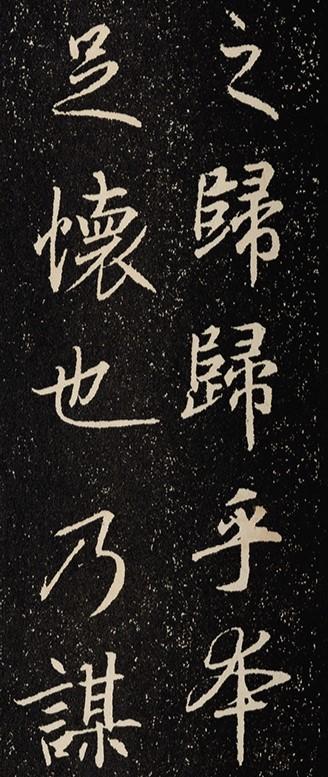 之歸歸乎本
足懷也乃謀